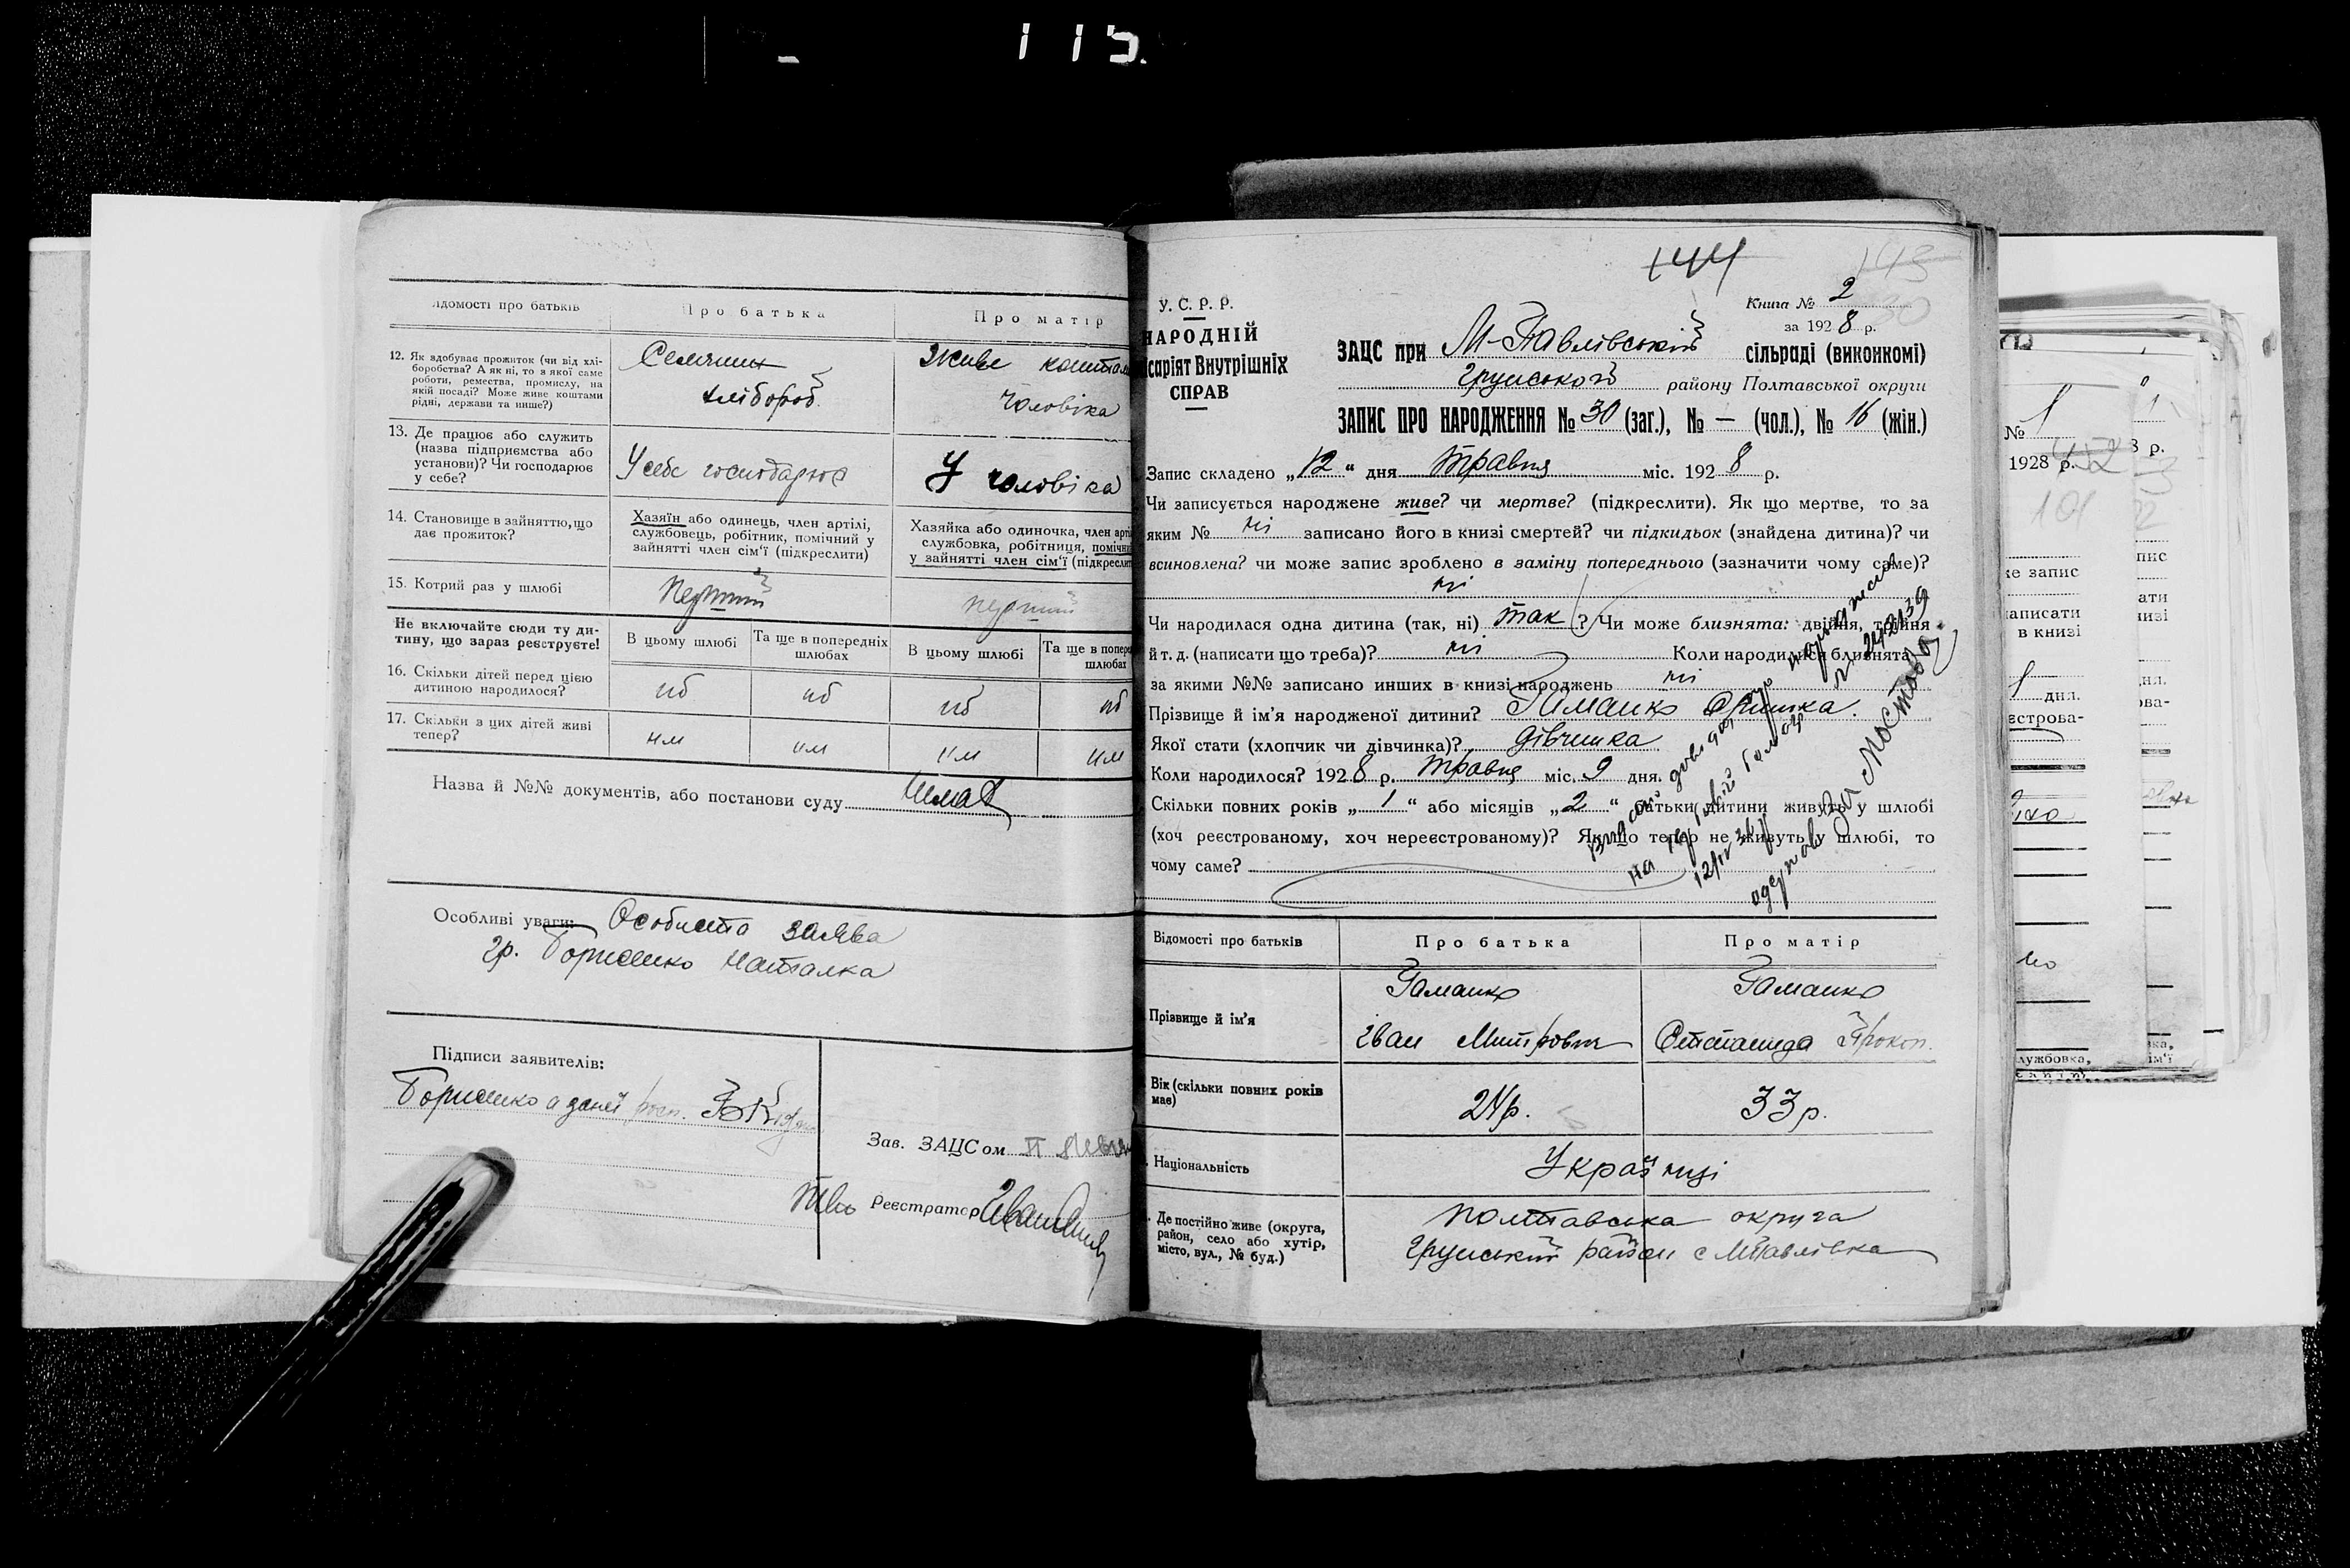 115.
Відомості про батьків
Про батька
Про матір
12. Як здобуває прожиток (чи від хлі-
боробства? А як ні, то з якої саме
роботи, ремества, промислу, на
якій посаді? Може живе коштами
рідні, держави та инше?)
Селянин
хлібороб.
Живе коштам
чоловіка
13. Де працює або служить
(назва підприємства або
установи)? Чи господарює
у себе?
У себе господарює
У чоловіка
14. Становище в зайняттю, що
дає прожиток?
Хазяїн або одинець, член артілі,
службовець, робітник, помічний у
зайнятті член сім'ї (підкреслити)
Хазяйка або одиночка, член арті
службовка, робітниця, помічн
у зайнятті член сім'ї (підкресли
15. Котрий раз у шлюбі
Перший
перший
Не включайте сюди ту ди-
тину, що зараз реєструєте!
В цьому шлюбі
Та ще в попередніх
шлюбах
В цьому шлюбі
Та ще в попере
шлюбах
16. Скільки дітей перед цією
дитиною народилося?
17. Скільки з цих дітей живі
тепер?
Назва й №№ документів, або постанови суду
Нема
Особливі уваги:
Особиста заява
гр. Борисенко Наталка
Підписи заявителів:
Борисенко а за неї
Зав. ЗАЦСом
Реєстратор
144
143
У. С. Р. Р.
НАРОДНІЙ
ісаріят Внутрішніх
СПРАВ
Книга № 2
за 1928 р.
ЗАЦС при М-Павлівській сільраді (виконкомі)
Грунському району Полтавської округи
ЗАПИС ПРО НАРОДЖЕННЯ № 30 (заг.), № — (чол.), № 16 (жін.)
Запис складено „12“ дня Травня міс. 1928 р.
Чи записується народжене живе? чи мертве? (підкреслити). Як що мертве, то за
яким № ні записано його в книзі смертей? чи підкидьок (знайдена дитина)? чи
всиновлена? чи може запис зроблено в заміну попереднього (зазначити чому саме)?
ні
Чи народилася одна дитина (так, ні) так ? Чи може близнята: двійня, трійня
й т. д. (написати що треба)? ні Коли народилися близнята,
за якими №№ записано инших в книзі народжень ні
Прізвище й ім'я народженої дитини? Гаманко Оришка.
Якої стати (хлопчик чи дівчинка)? дівчинка
Коли народилося? 1928 р. Травня міс. 9 дня.
Скільки повних років „1“ або місяців „2“ батьки дитини живуть у шлюбі
(хоч реєстрованому, хоч нереєстрованому)? Якщо тепер не живуть у шлюбі, то
чому саме?
Відомості про батьків
Про батька
Про матір
Прізвище й ім'я
Гаманко
Іван Митрович
Гаманко
Степанида Прокоп.
Вік (скільки повних років
має)
24р.
33р.
Національність
Українці
Де постійно живе (округа,
район, село або хутір,
місто, вул., № буд.)
Полтавська округа
Грунський район с МПавлівка
№ 1
1928 р.